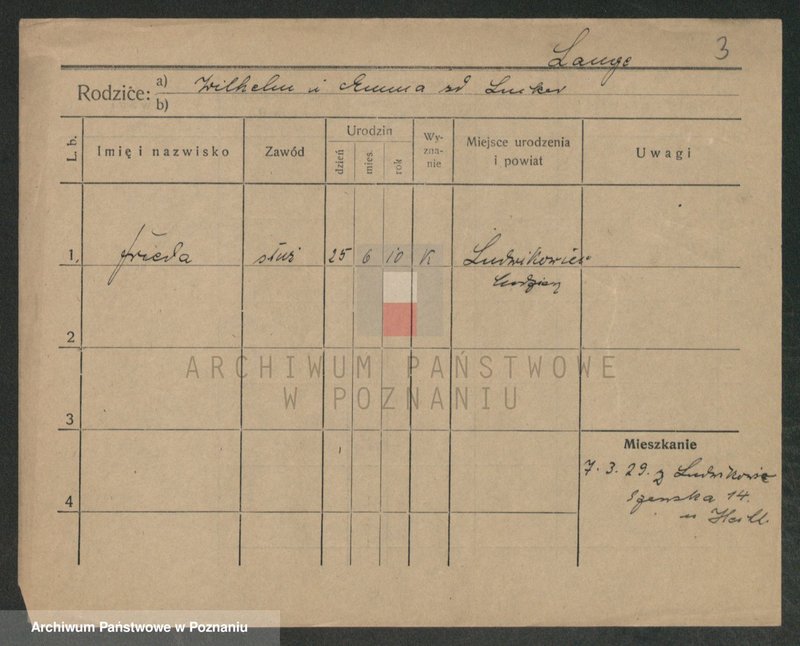 Lange 3
Rodzice: a) Wilhelm i Emma zd
b)
L. b. Imię i nazwisko Zawód Urodzin dzień mies. rok Wy-zna-nie Miejsce urodzenia i powiat Uwagi
1. Frieda służ 25 6 10 K Ludwikowice
2
ARCHIWUM PAŃSTWOWE
W POZNANIU
3
Mieszkanie
7. 3. 29. z Ludwikowic
4 14.
u
Archiwum Państwowe w Poznaniu